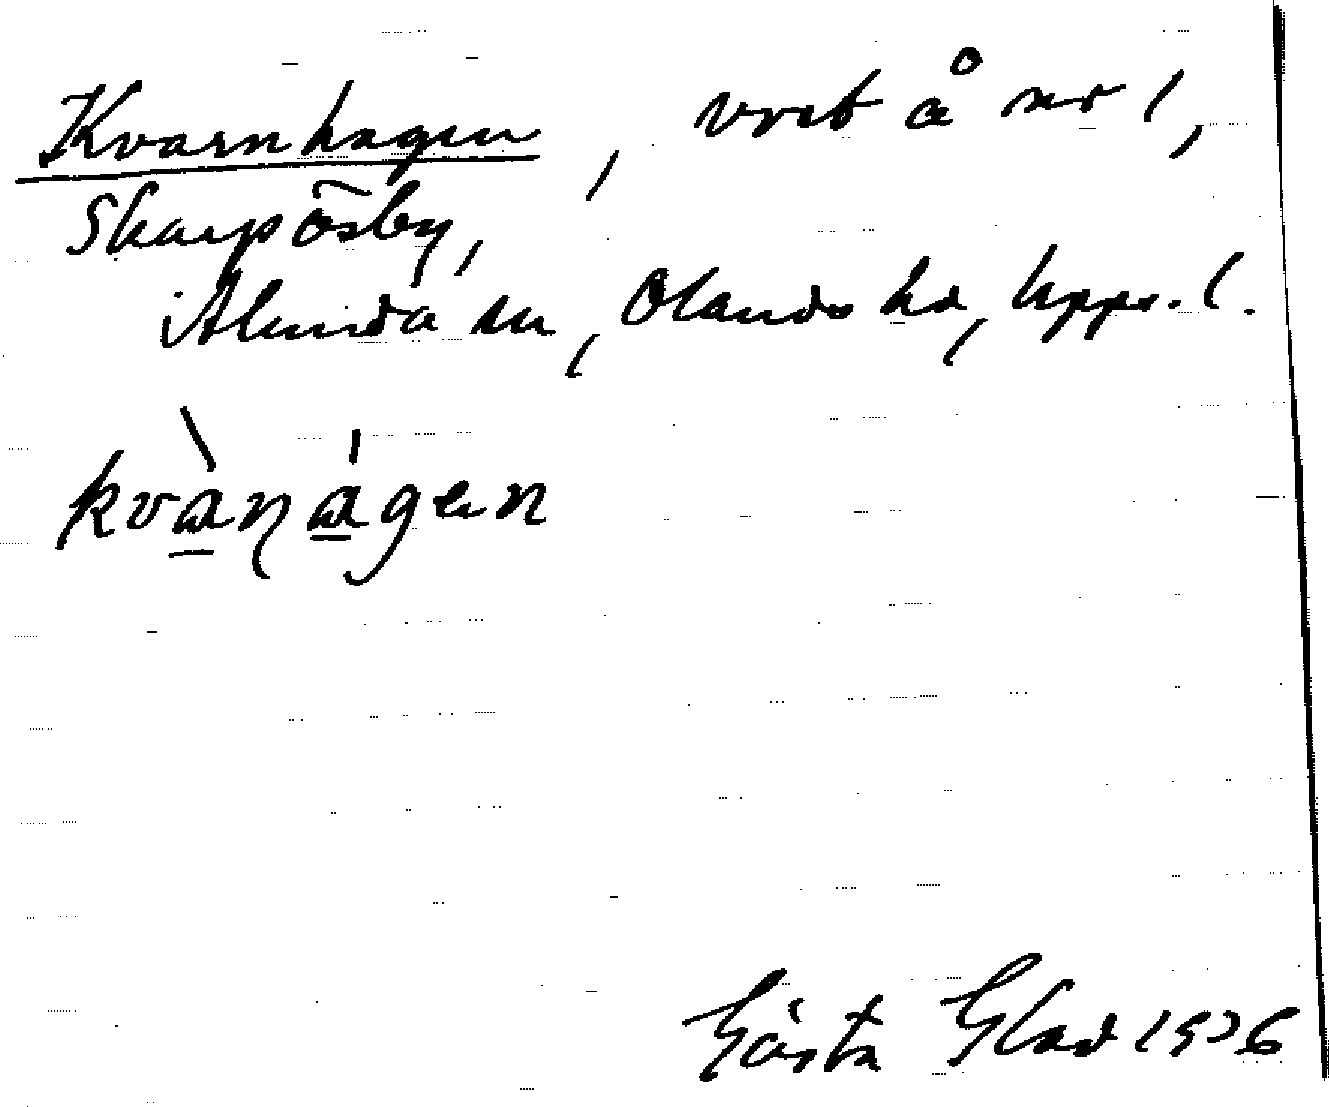 Kvarnhagen, vret å nr 1,
Skarpösby,
Alunda sn, Olands hd, Upps. l.
kvànágen
Gösta Glad 1936